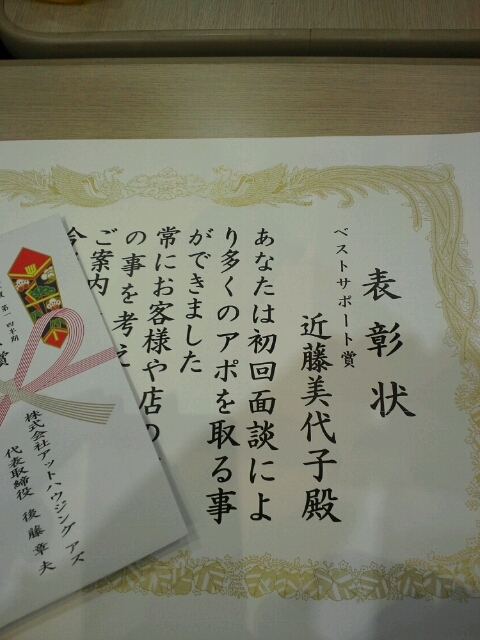 表彰状
ベストサポート賞
近藤美代子殿
あなたは初回面談によ
り多くのアポを取る事
ができました
常にお客様や店の
の事を考え
ご案内
今
第一四半期
賞
株式会社アットハウジングアズ
代表取締役 後藤章夫